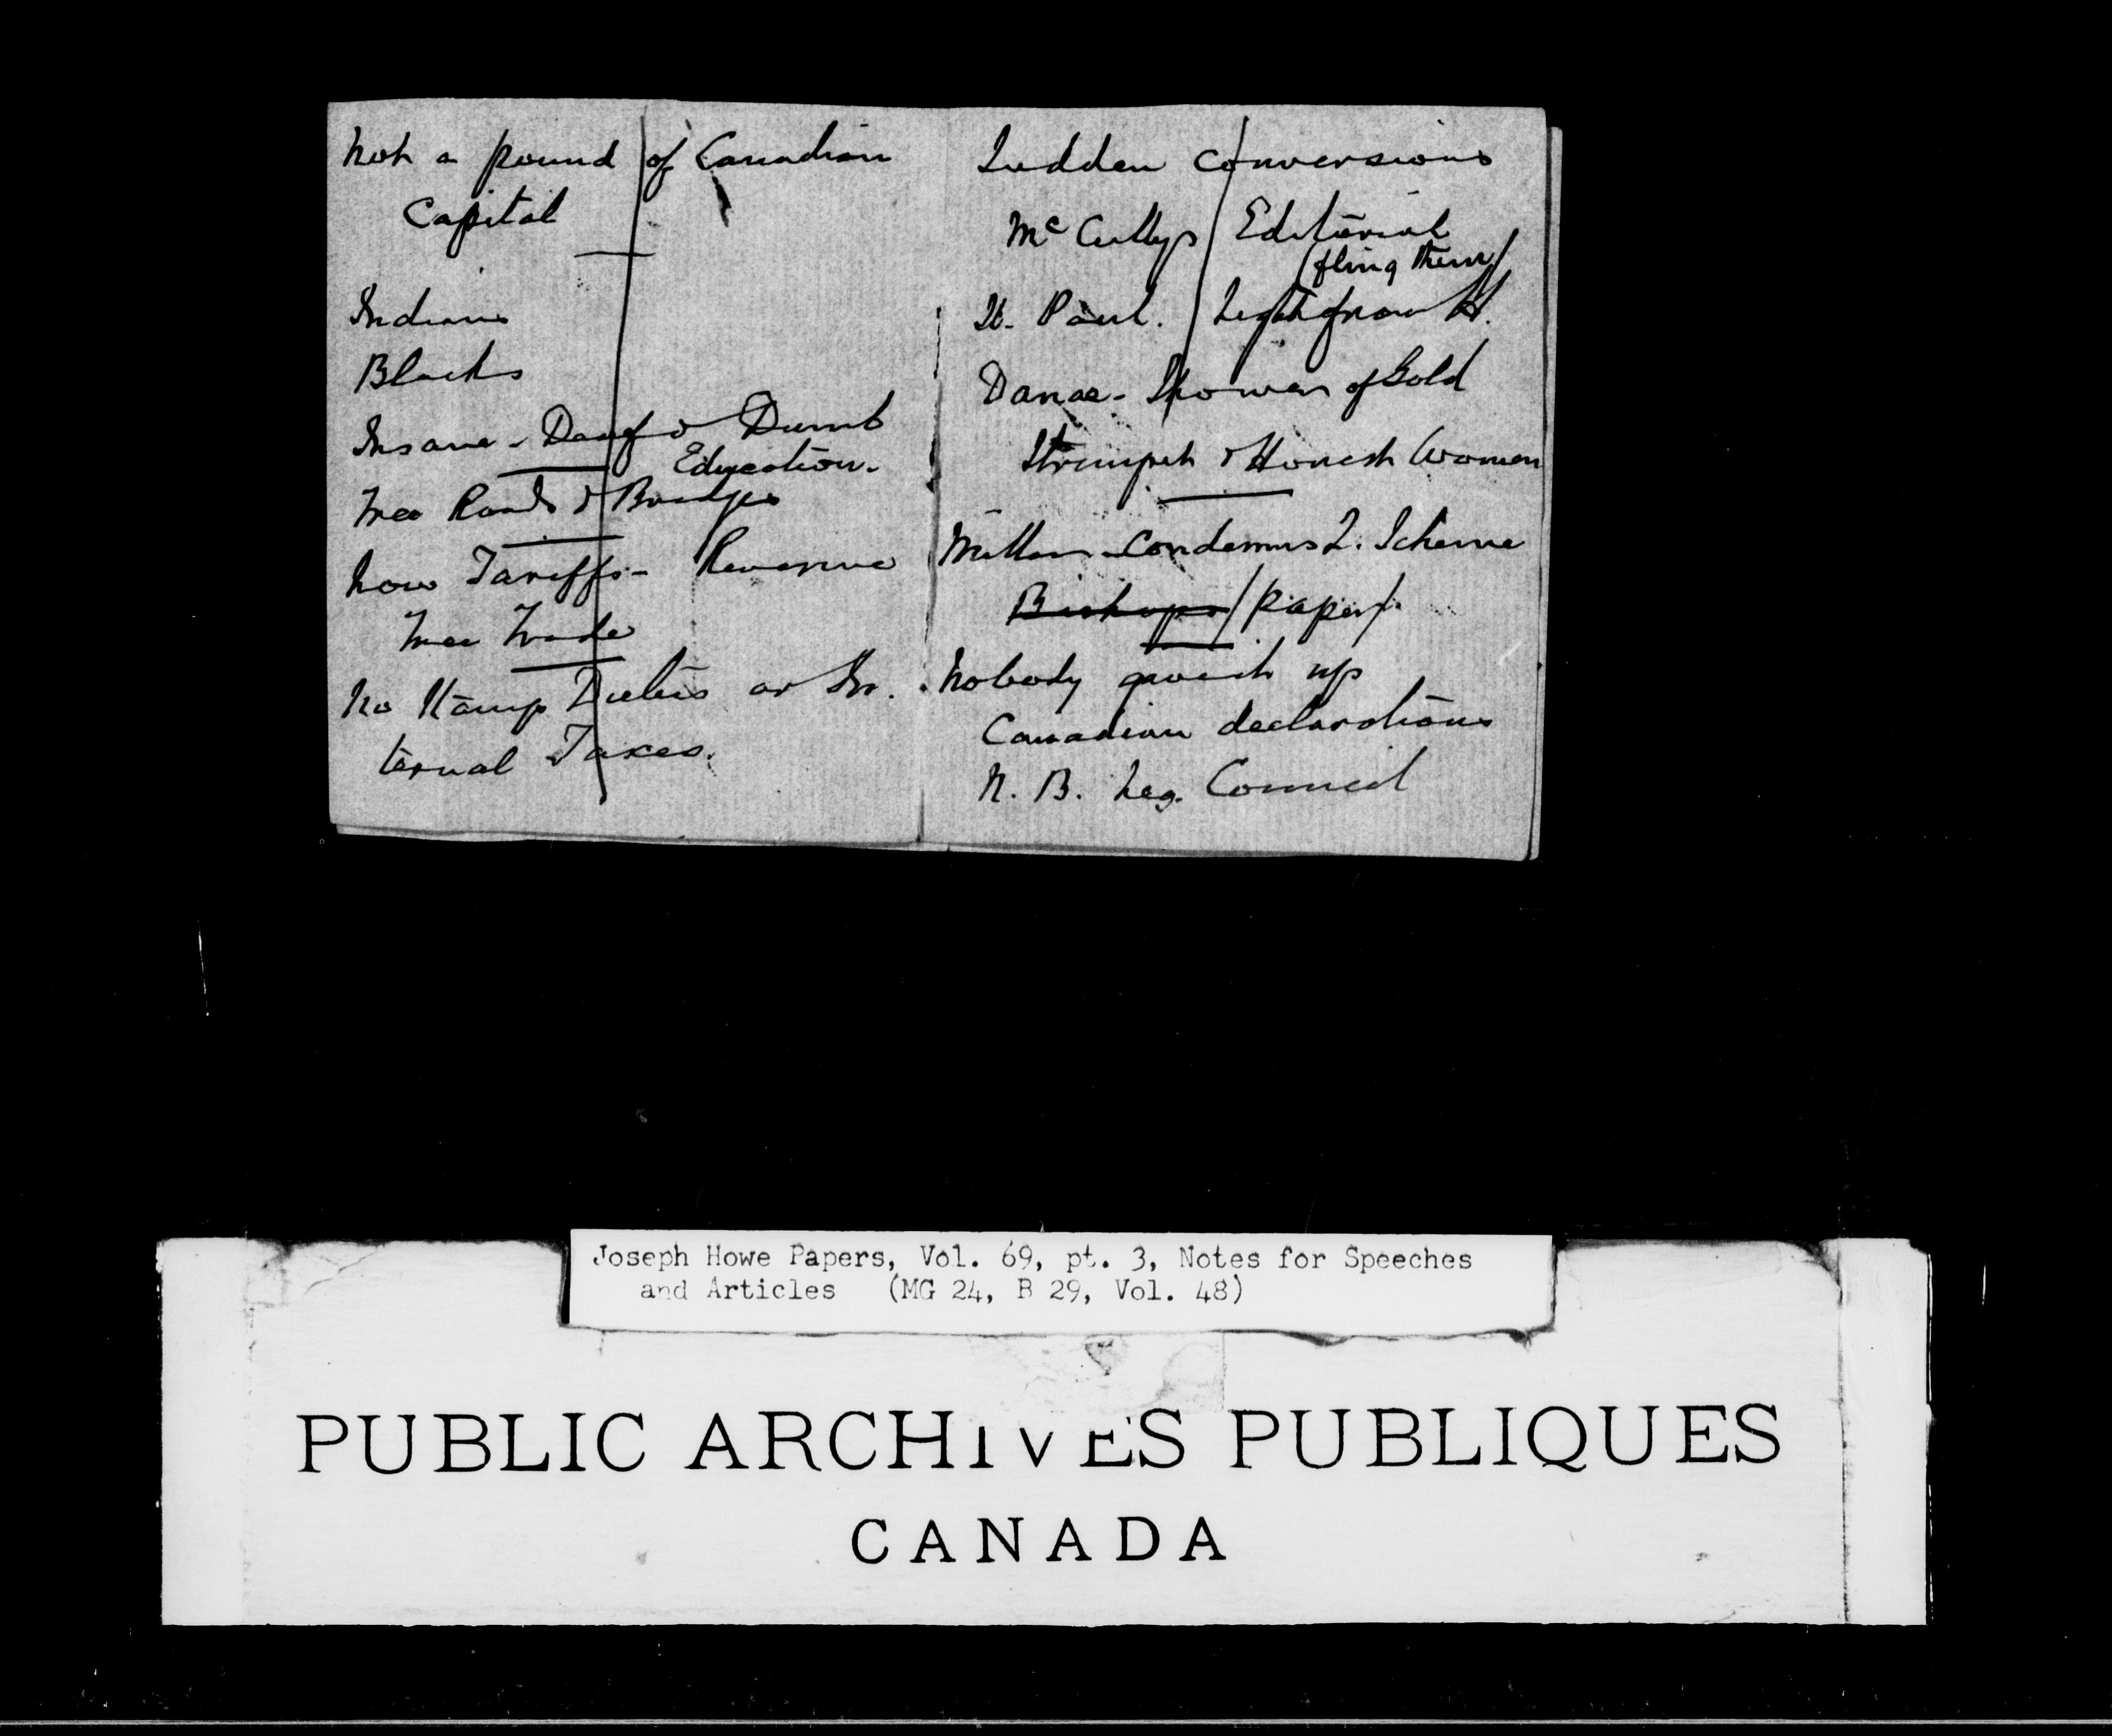 Not a pound of Canadian
Capital
Indians
Blacks
Insane - Deaf & Dumb
Education.
Free Roads & Bridges
Low Tariffs - Revenue
Free Trade
No Stamp Duties or In
ternal Taxes.
Sudden Conversions
McCullys Editorial
(fling them)
St. Paul. Light from H.
Danae - Shower of Gold
Strumpet & Honest Women
Millar - Condemns Q. Scheme
Bishops / Paper /.
Nobody up
Canadian declarations
N. B. Leg. Council
Joseph Howe Papers, Vol. 69, pt. 3, Notes for Speeches
and Articles (MG 24, B 29, Vol. 48)
PUBLIC ARCHIVES PUBLIQUES
CANADA